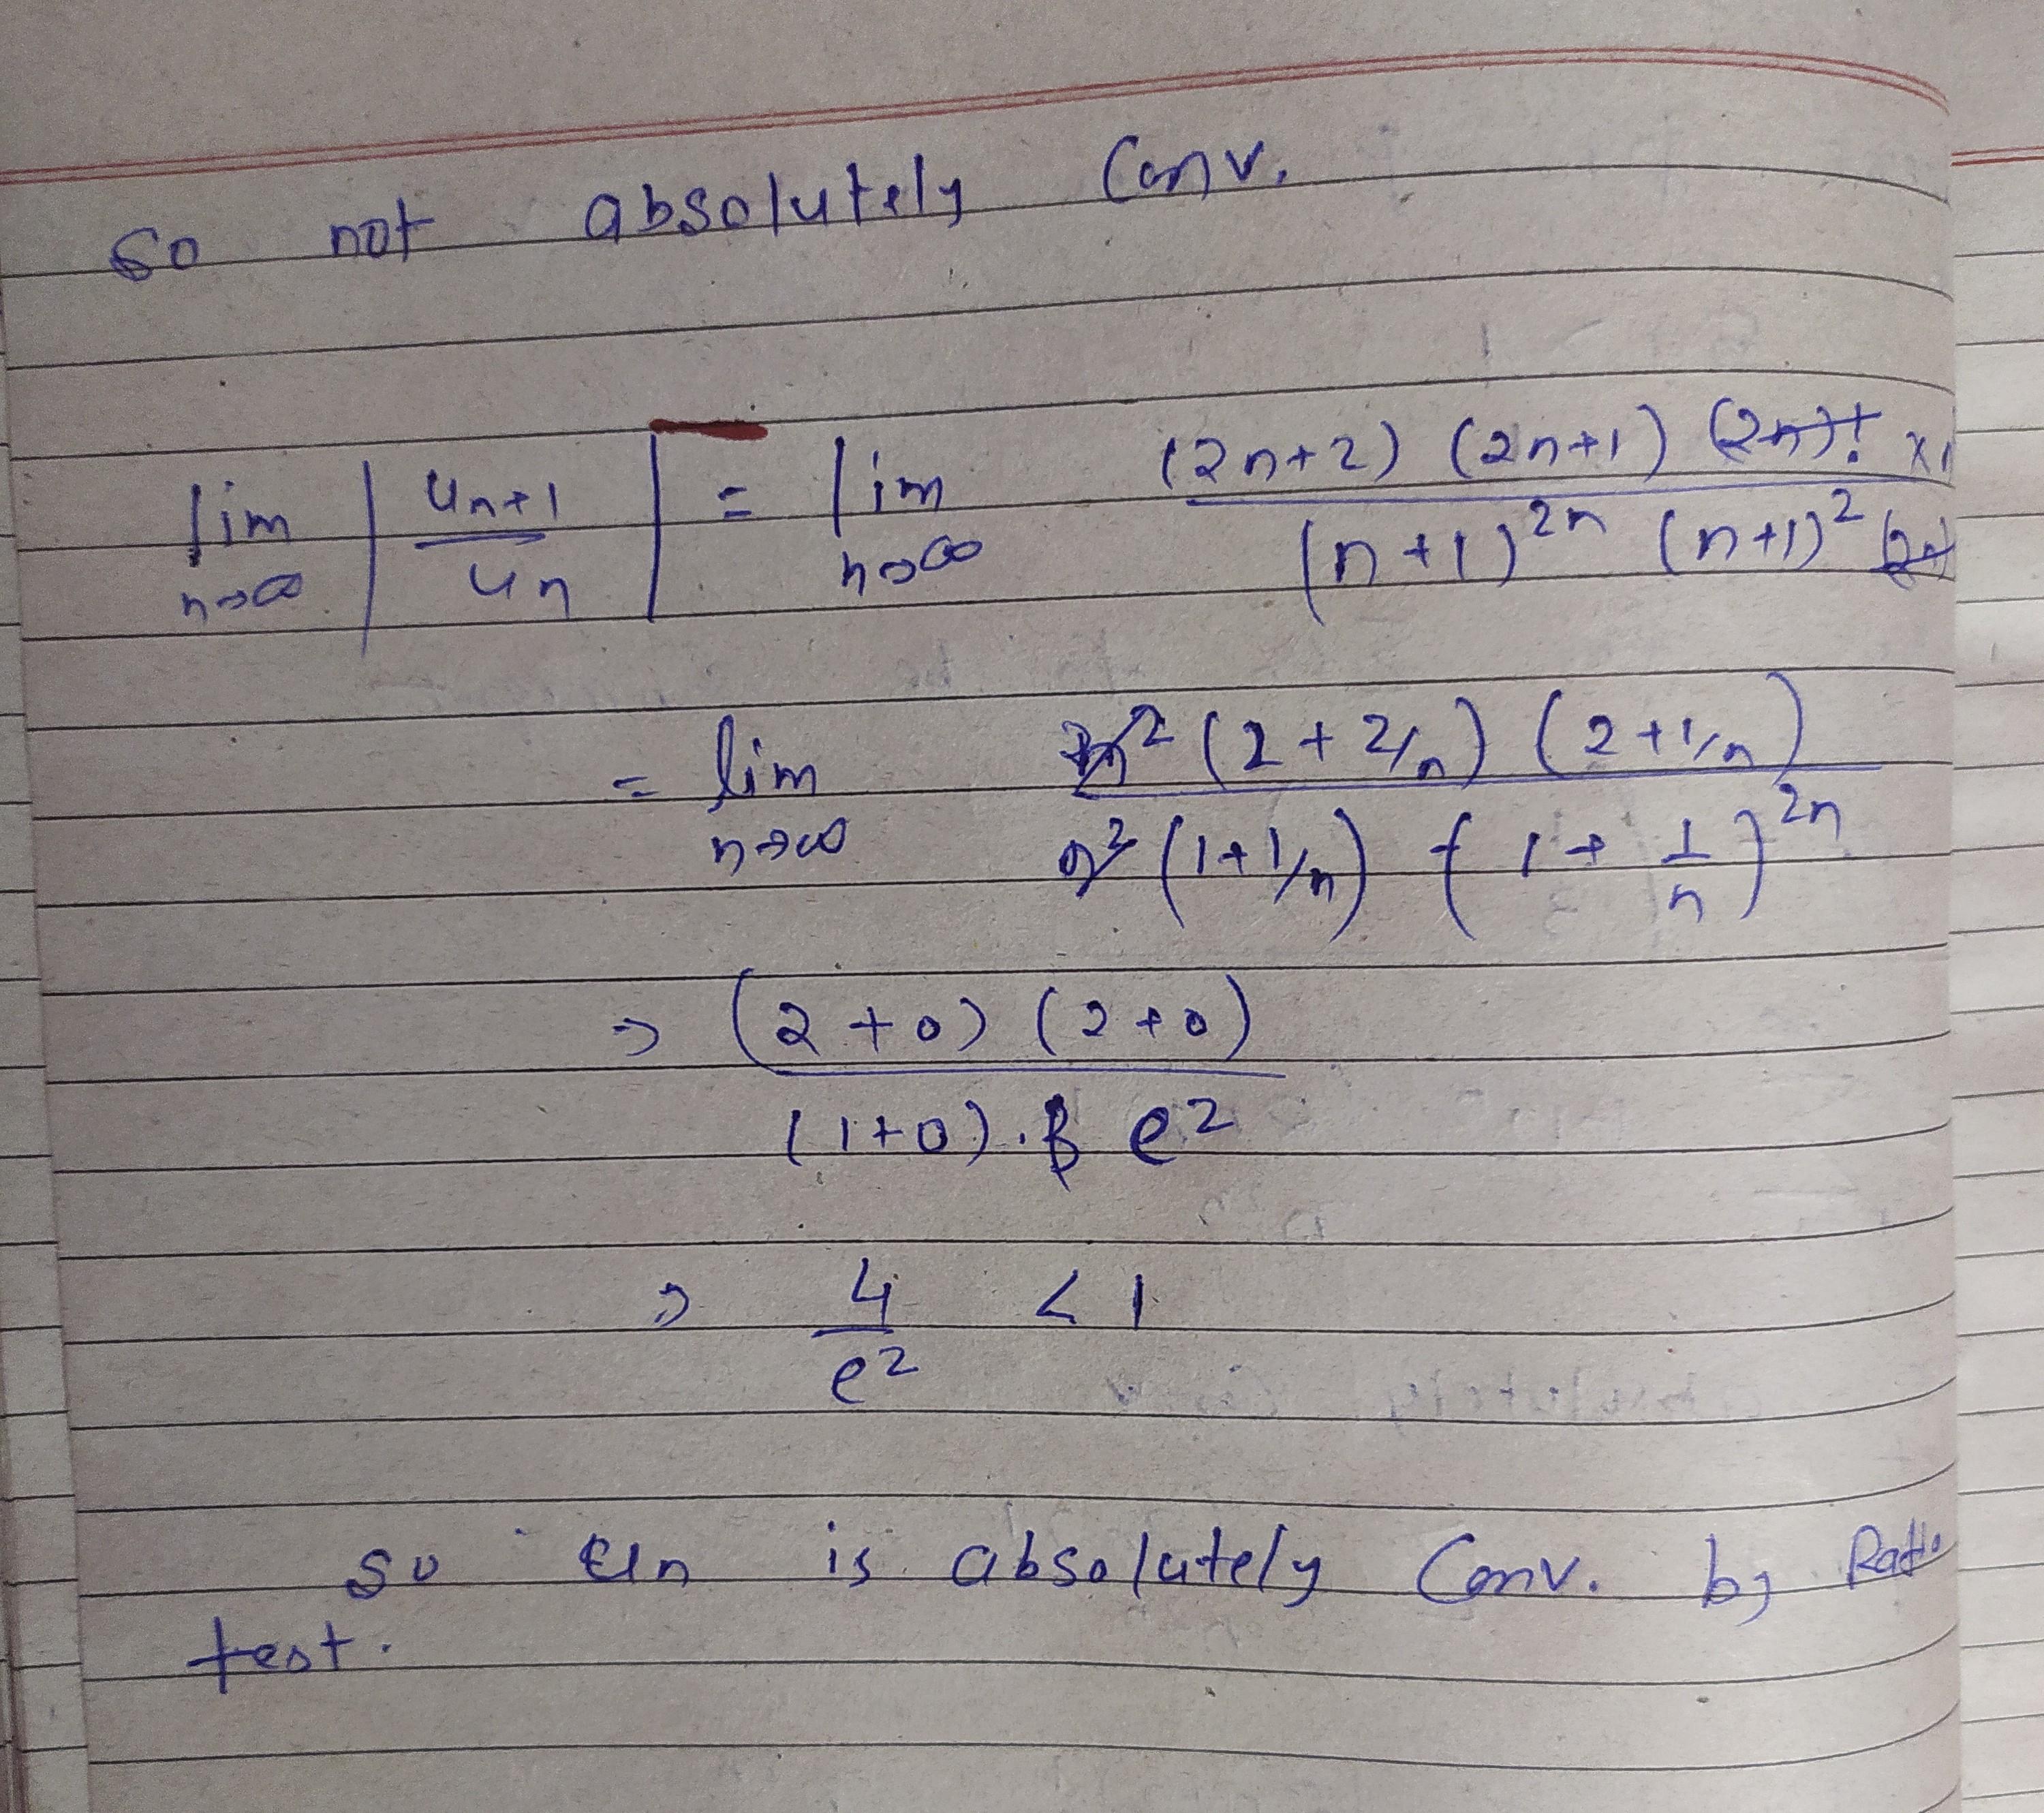 so not absolutely Conv.
lim n→∞ | Un+1 / Un | = lim n→∞ (2n+2) (2n+1) (2n)! × / (n+1)^2n (n+1)^2
= lim n→∞ n^2 (2 + 2/n) (2 + 1/n) / n^2 (1+1/n) (1 + 1/n)^2n
⇒ (2+0) (2+0) / (1+0). e^2
⇒ 4 / e^2 < 1
so Un is absolutely Conv. by Ratio
test.